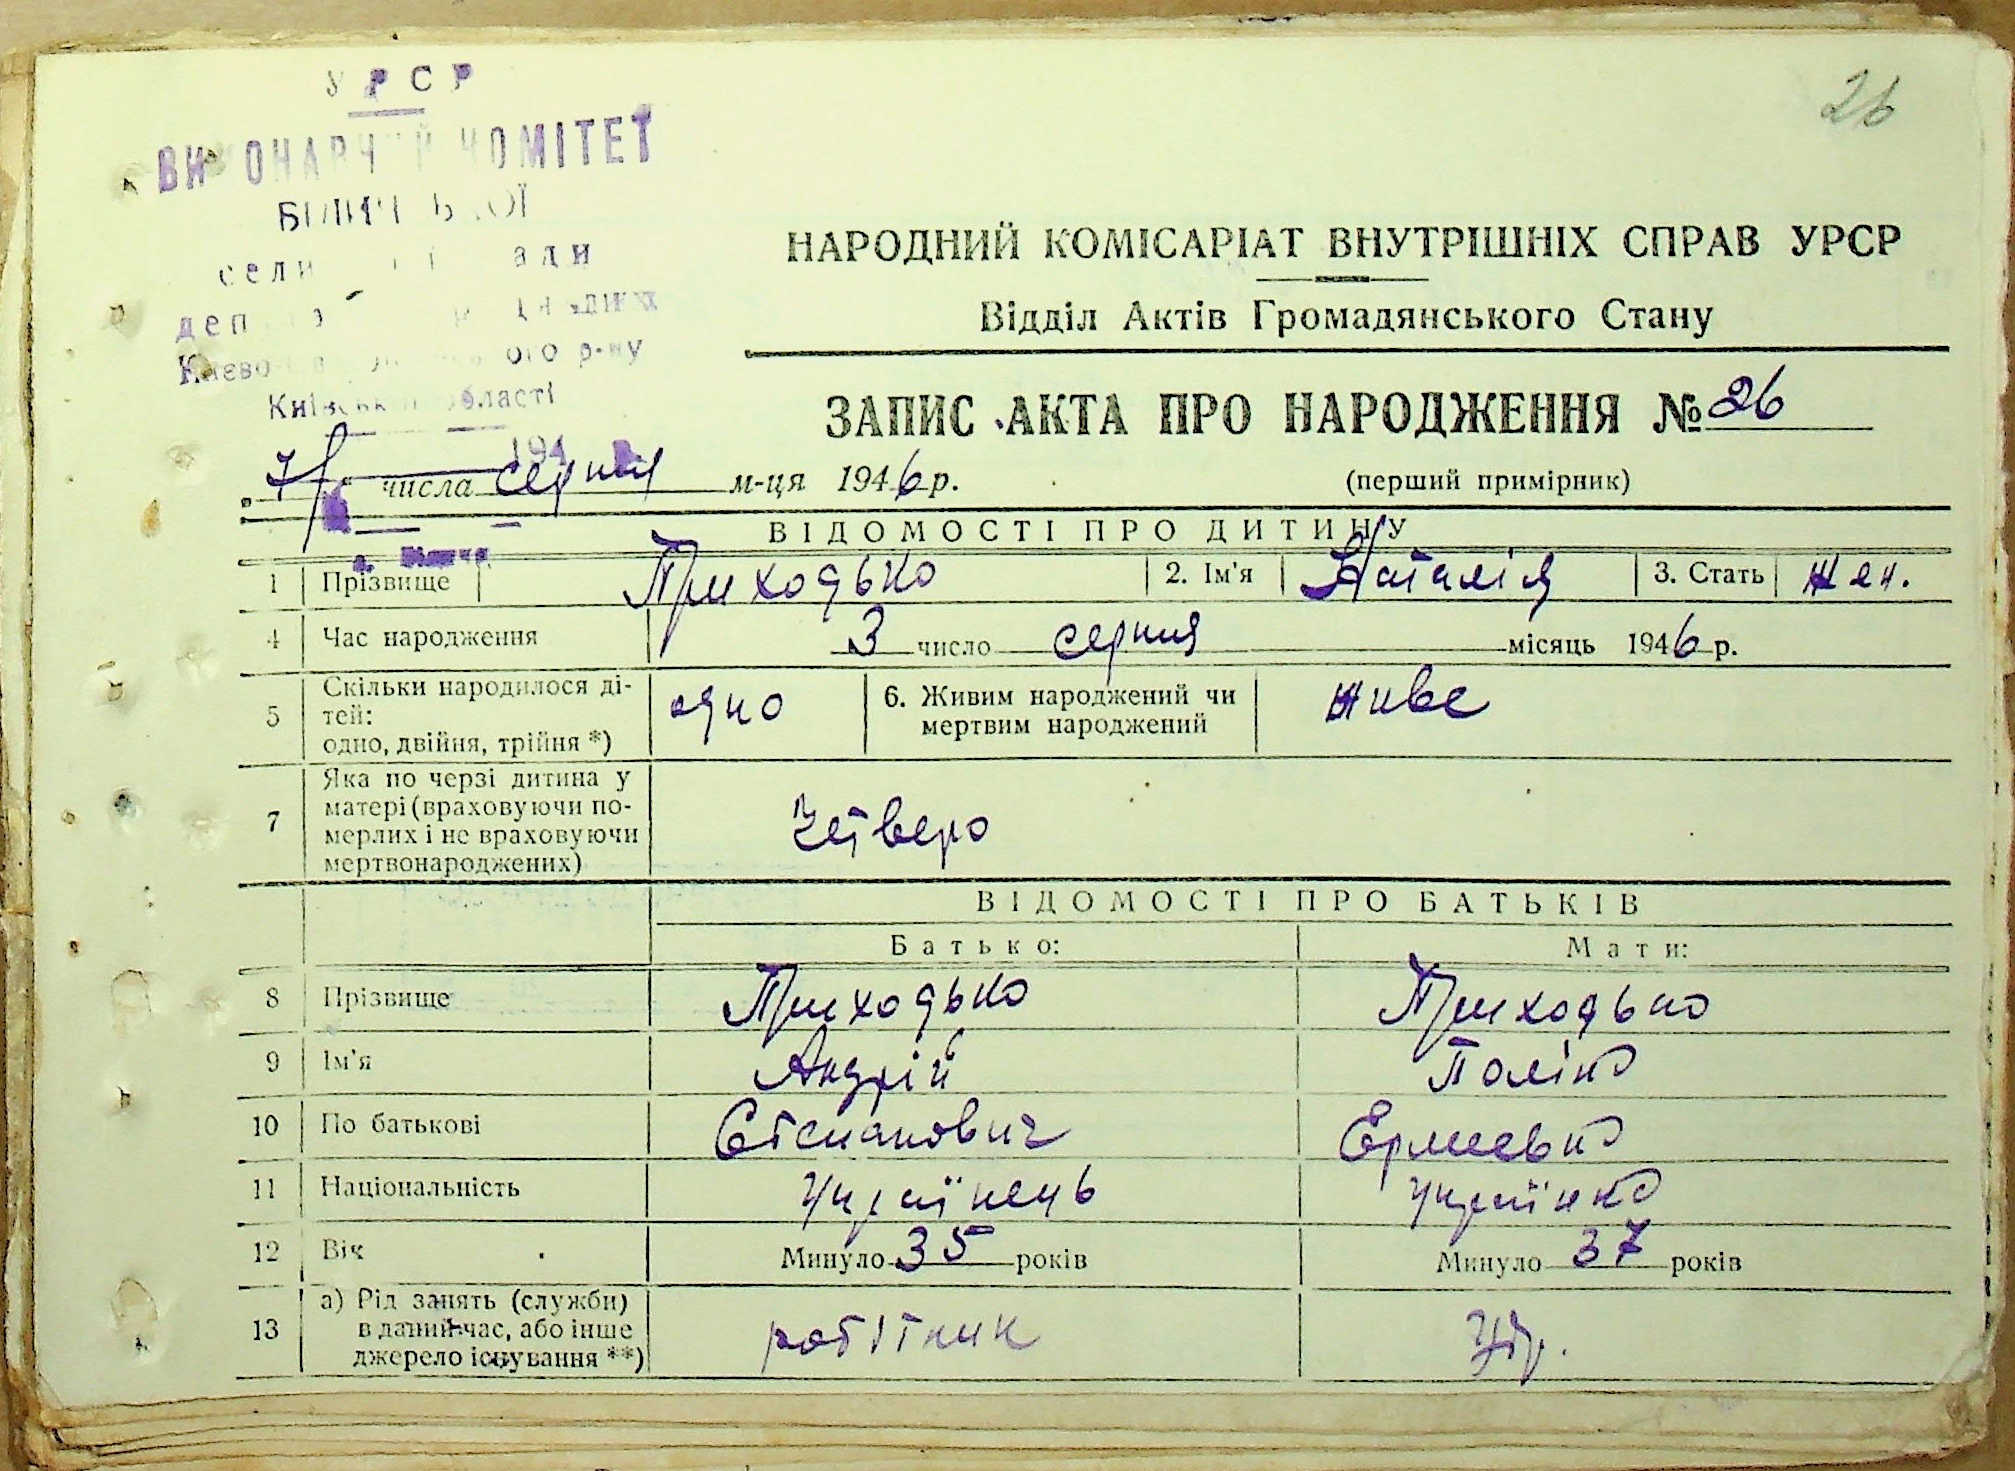 26
УРСР
ВИКОНАВЧИЙ КОМІТЕТ
Київської області
194
НАРОДНИЙ КОМІСАРІАТ ВНУТРІШНІХ СПРАВ УРСР
Відділ Актів Громадянського Стану
ЗАПИС АКТА ПРО НАРОДЖЕННЯ № 26
7 числа серпня м-ця 1946 р. (перший примірник)
ВІДОМОСТІ ПРО ДИТИНУ
1 Прізвище Приходько 2. Ім'я Наталія 3. Стать жен.
4 Час народження 3 число серпня місяць 1946 р.
5 Скільки народилося ді-
тей:
одно, двійня, трійня *) одно 6. Живим народжений чи
мертвим народжений живе
7 Яка по черзі дитина у
матері (враховуючи по-
мерлих і не враховуючи
мертвонароджених) четверо
ВІДОМОСТІ ПРО БАТЬКІВ
Батько: Мати:
8 Прізвище Приходько Приходько
9 Ім'я Андрій Поліна
10 По батькові Степанович
11 Національність Українець Українка
12 Вік Минуло 35 років Минуло 37 років
13 а) Рід занять (служби)
в даний час, або інше
джерело існування **) робітник